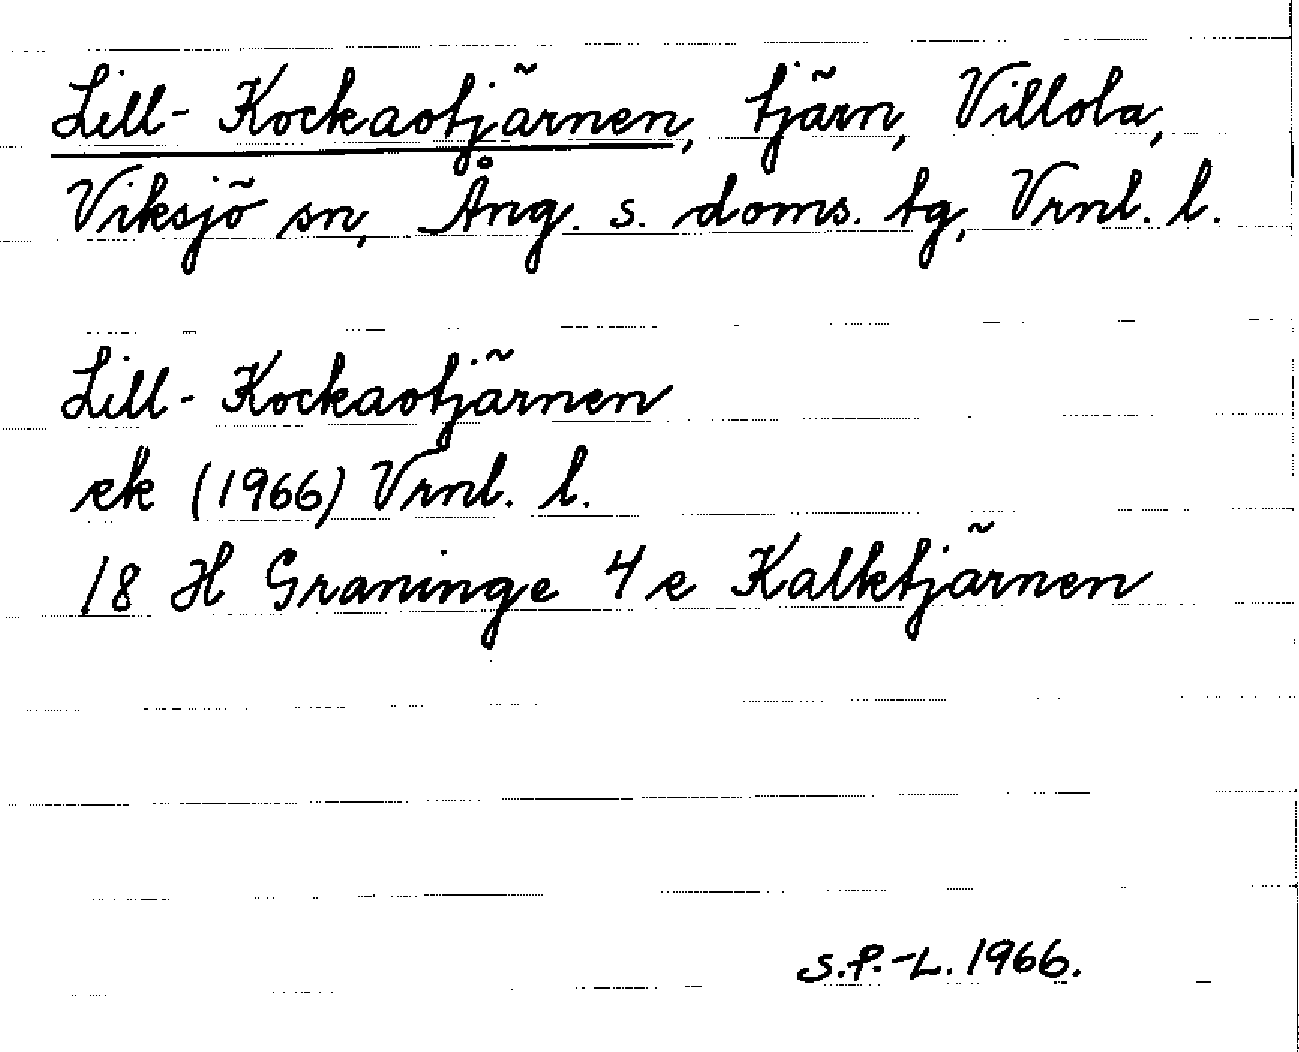 Lill-Kockaotjärnen, tjärn, Villola,
Viksjö sn, Ång. s. doms. tg, Vrnl. l.
Lill-Kockaotjärnen
ek (1966) Vrnl. l.
18 H Graninge 4 e Kalktjärnen
S.P.-L. 1966.